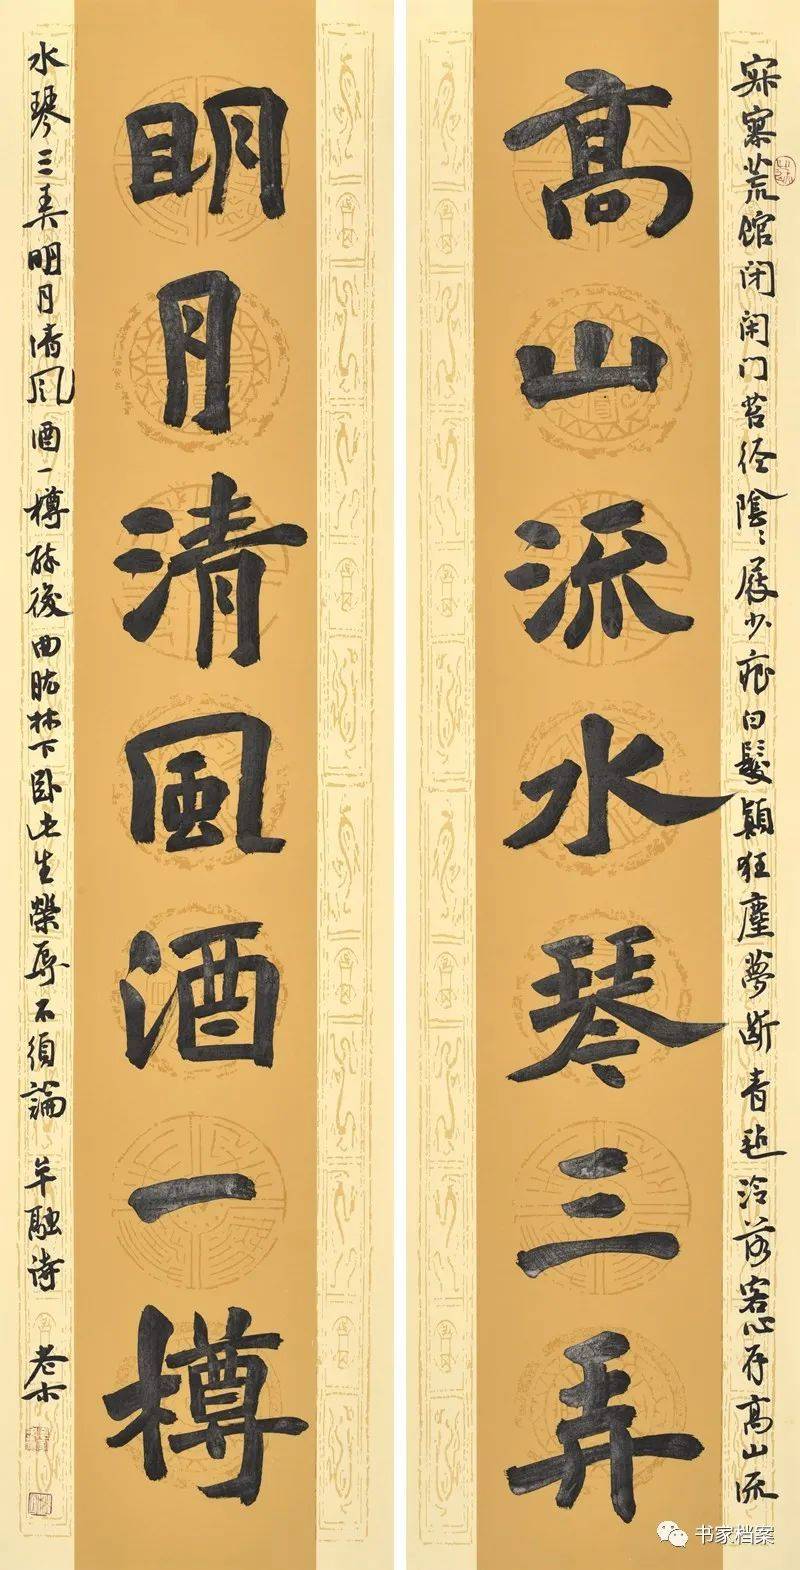 寂寞荒馆闭闲门苔径陰〻屐少痕白髮顛狂塵夢断青氈泠落客心存高山流
高山流水琴三弄
明月清風酒一樽
水琴三弄明月清風酒一樽醉後曲肱林下臥此生榮辱不須論 牟融詩
书家档案